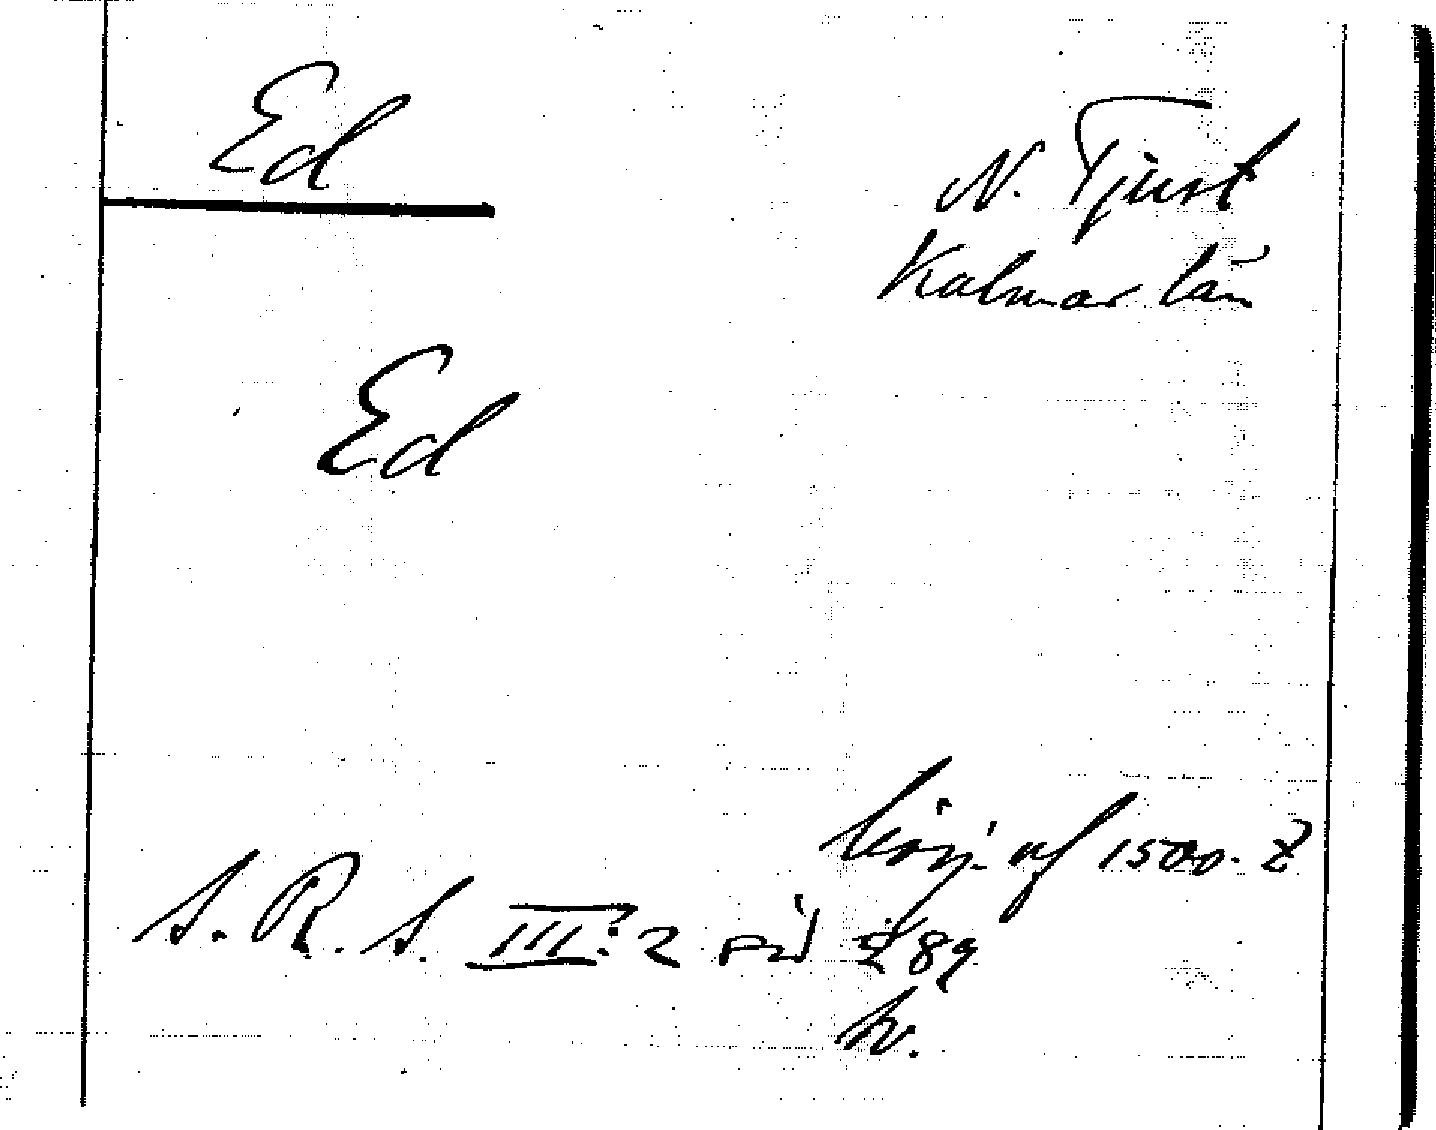 Ed
N. Tjust
Kalmar län
Ed
börj. af 1500-t
S. R. S. III:2 sid 289
hv.